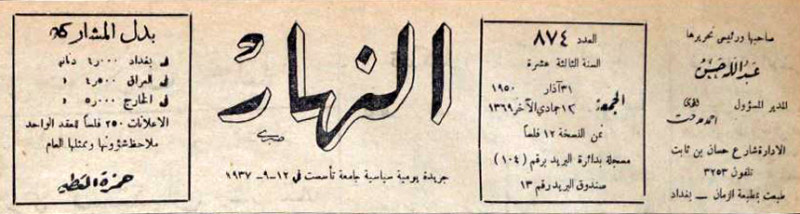 صاحبها ورئيس تحريرها
عبدالله حسن
المدير المسؤول
الادارة شارع حسان بن ثابت
تلفون ٣٢٥٣
طبعت بمطبعة الزمان — بغداد
العدد ٨٧٤
السنة الثالثة عشرة
الجمعة
٣١ آذار ١٩٥٠
١٢ جمادي الآخر ١٣٦٩
ثمن النسخة ١٢ فلساً
مسجلة بدائرة البريد برقم (١٠٤)
صندوق البريد رقم ١٣
النهار
صبري
جريدة يومية سياسية جامعة تأسست في ١٢-٩-١٩٣٧
بدل المشاركة
في بغداد ٤٫٠٠٠ دنانير
في العراق ٤٫٥٠٠ »
في الخارج ٥٫٠٠٠ »
الاعلانات ٢٥٠ فلساً للعقد الواحد
ملاحظ شؤونها وممثلها العام
حمزة